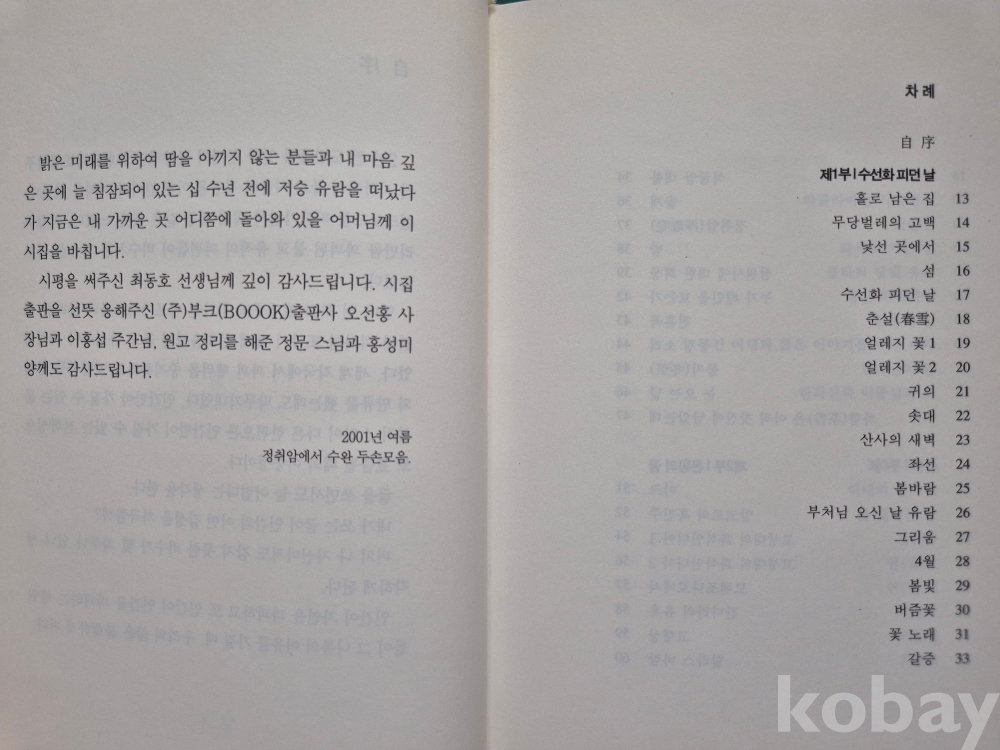 밝은 미래를 위하여 땀을 아끼지 않는 분들과 내 마음 깊
은 곳에 늘 침잠되어 있는 십 수년 전에 저승 유람을 떠났다
가 지금은 내 가까운 곳 어디쯤에 돌아와 있을 어머님께 이
시집을 바칩니다.
시평을 써주신 최동호 선생님께 깊이 감사드립니다. 시집
출판을 선뜻 응해주신 (주)부크(BOOOK)출판사 오선홍 사
장님과 이홍섭 주간님, 원고 정리를 해준 정문 스님과 홍성미
양께도 감사드립니다.
2001년 여름
정취암에서 수완 두손모음.
차례
自序
제1부 | 수선화 피던 날
홀로 남은 집 13
무당벌레의 고백 14
낯선 곳에서 15
섬 16
수선화 피던 날 17
춘설(春雪) 18
얼레지 꽃 1 19
얼레지 꽃 2 20
귀의 21
솟대 22
산사의 새벽 23
좌선 24
봄바람 25
부처님 오신 날 유람 26
그리움 27
4월 28
봄빛 29
버즘꽃 30
꽃 노래 31
갈증 33
kobay